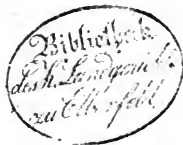 Bibliothek
des K. Landgerichts
zu Elberfeld